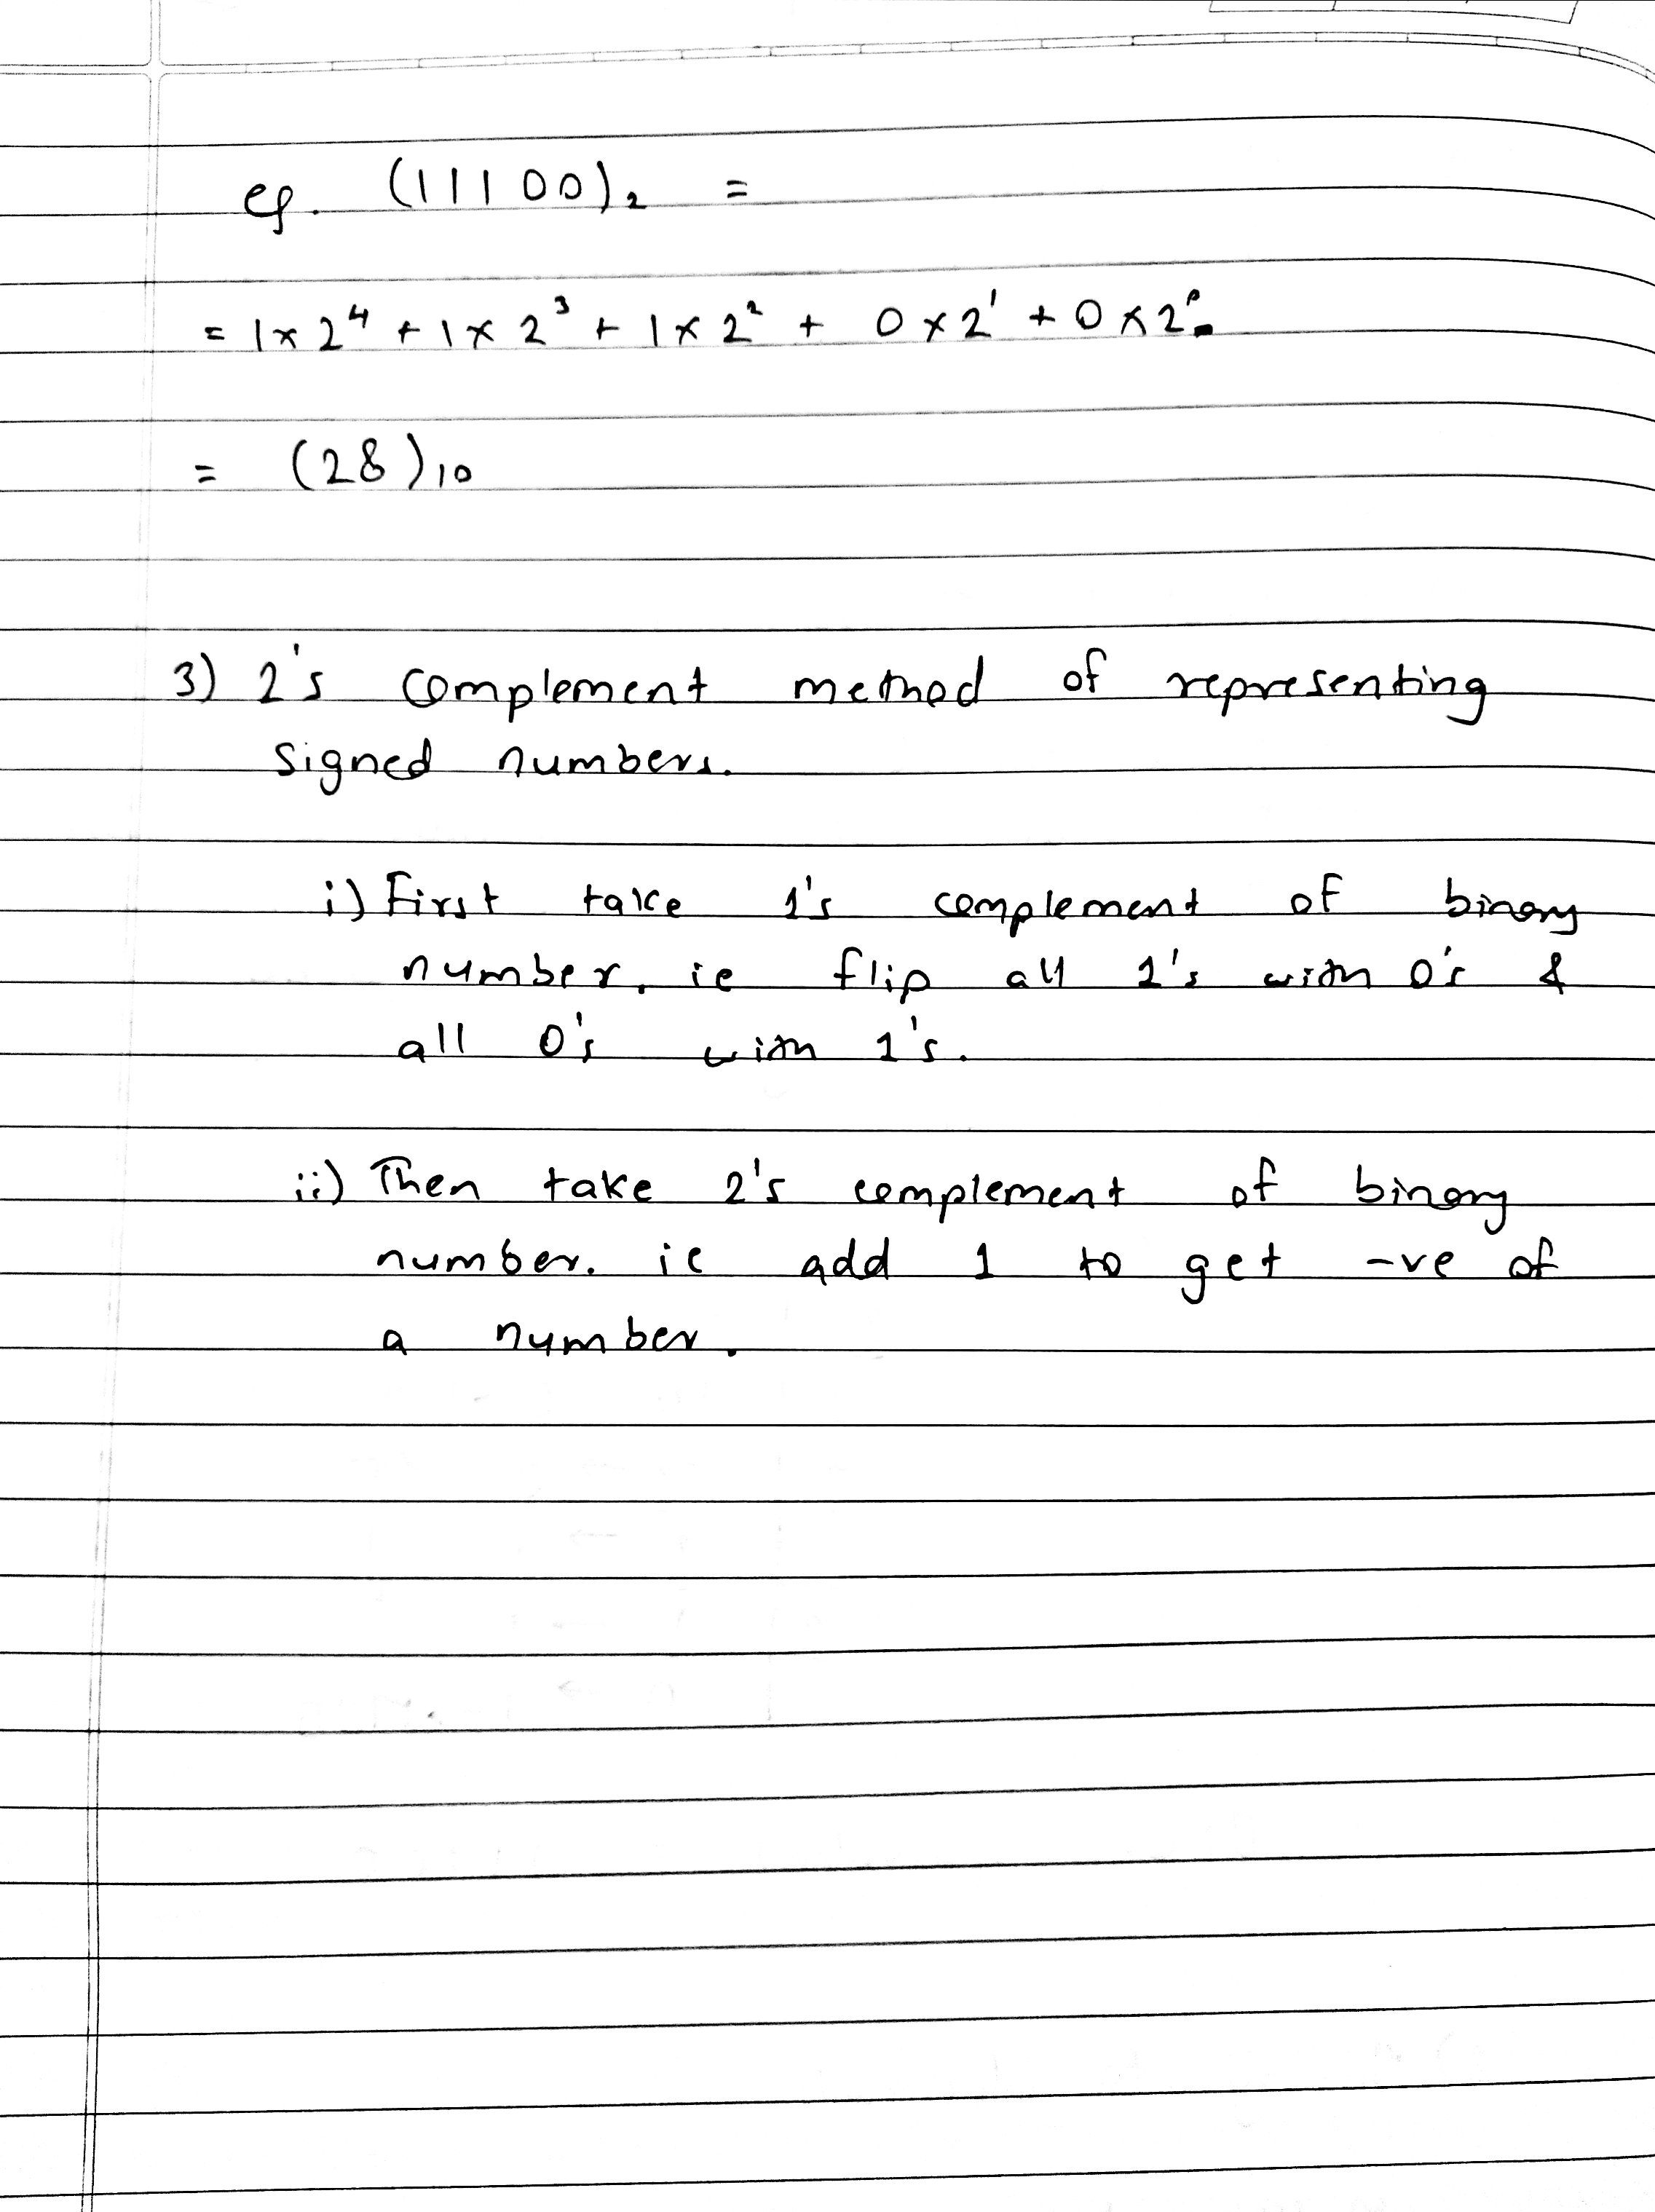 eg. (11100)₂ =
= 1 × 2⁴ + 1 × 2³ + 1 × 2² + 0 × 2¹ + 0 × 2⁰
= (28)₁₀
3) 2's complement method of representing
signed numbers.
i) First take 1's complement of binary
number. ie flip all 1's with 0's &
all 0's with 1's.
ii) Then take 2's complement of binary
number. ie add 1 to get -ve of
a number.